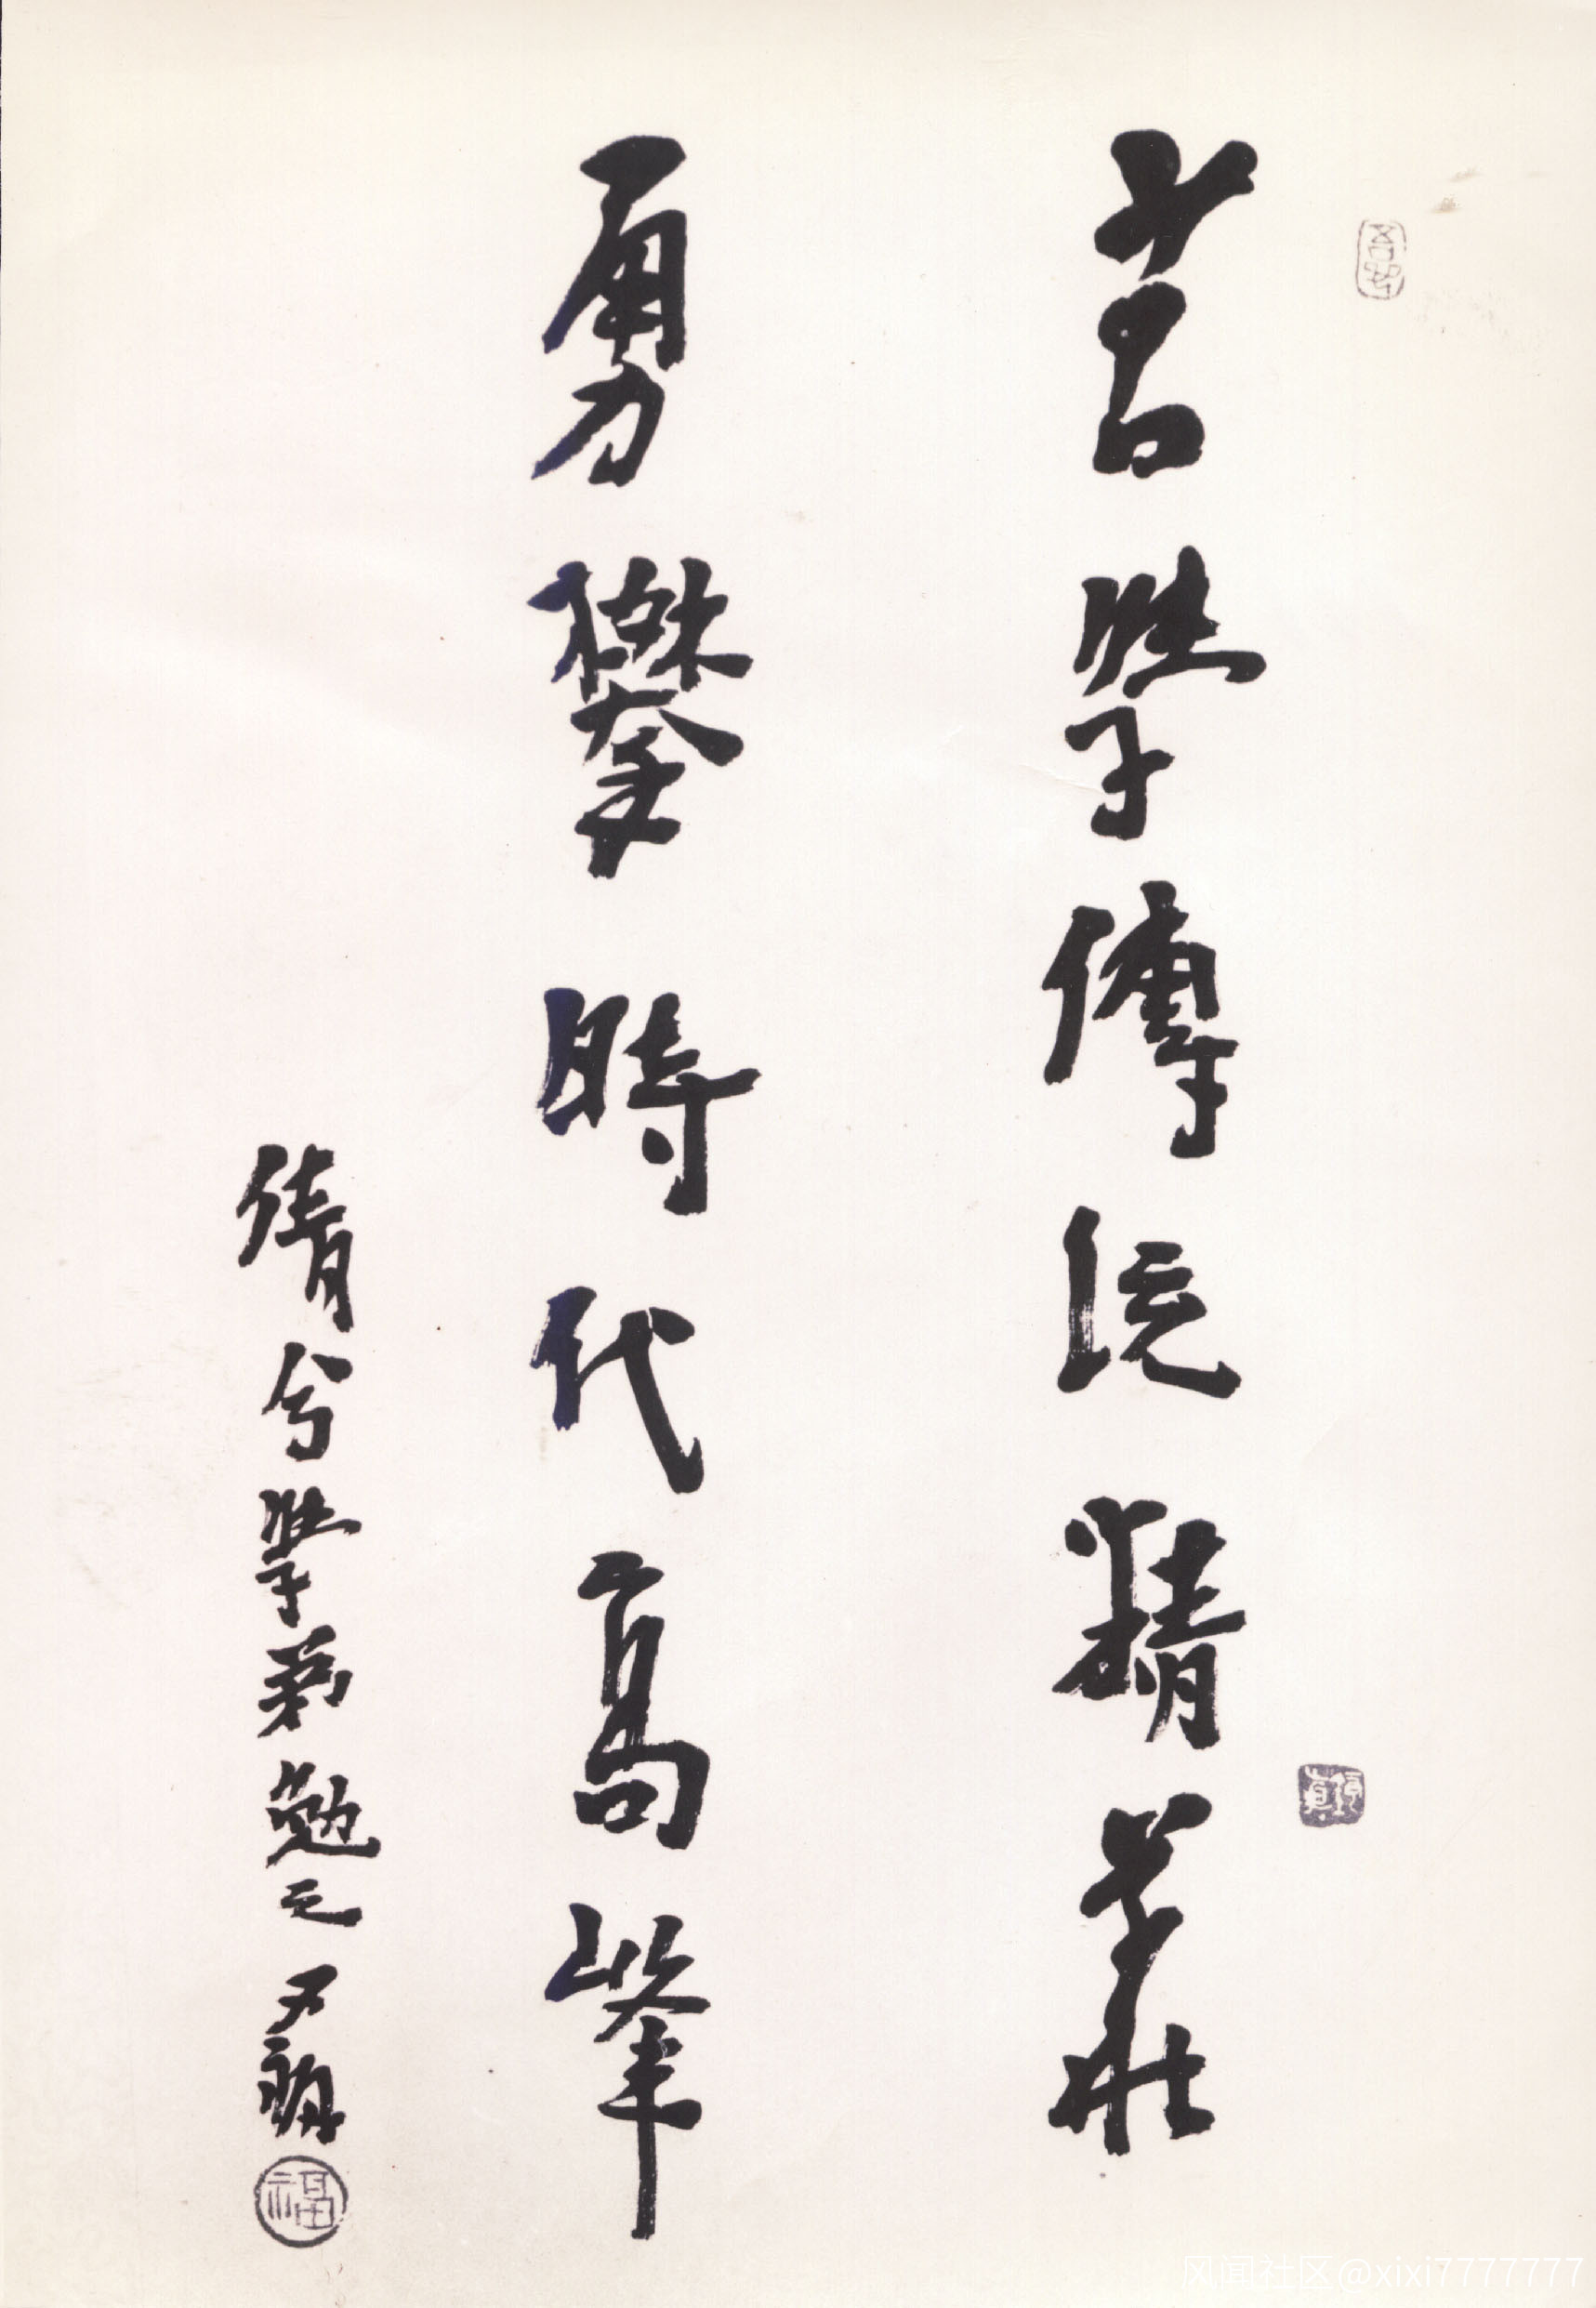 苦學傳統精華
勇攀時代高峰
倩兮學弟勉之
福
风闻社区@xixi7777777